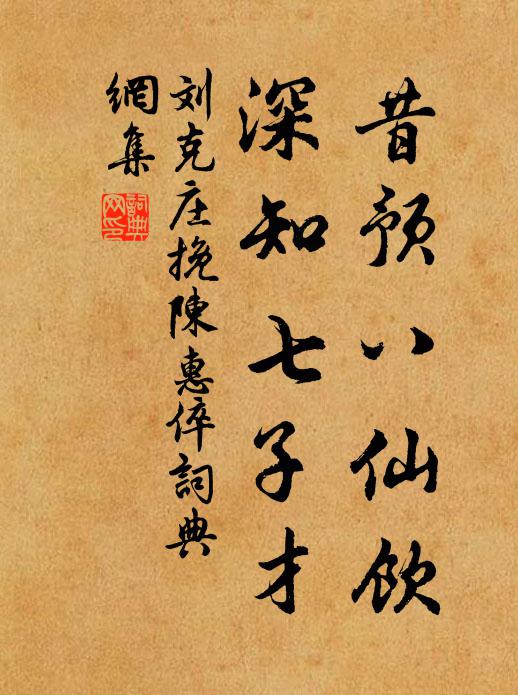 昔预八仙飲
深知七子才
刘克庄挽陳惠倅詞典
網集
詞典
网印